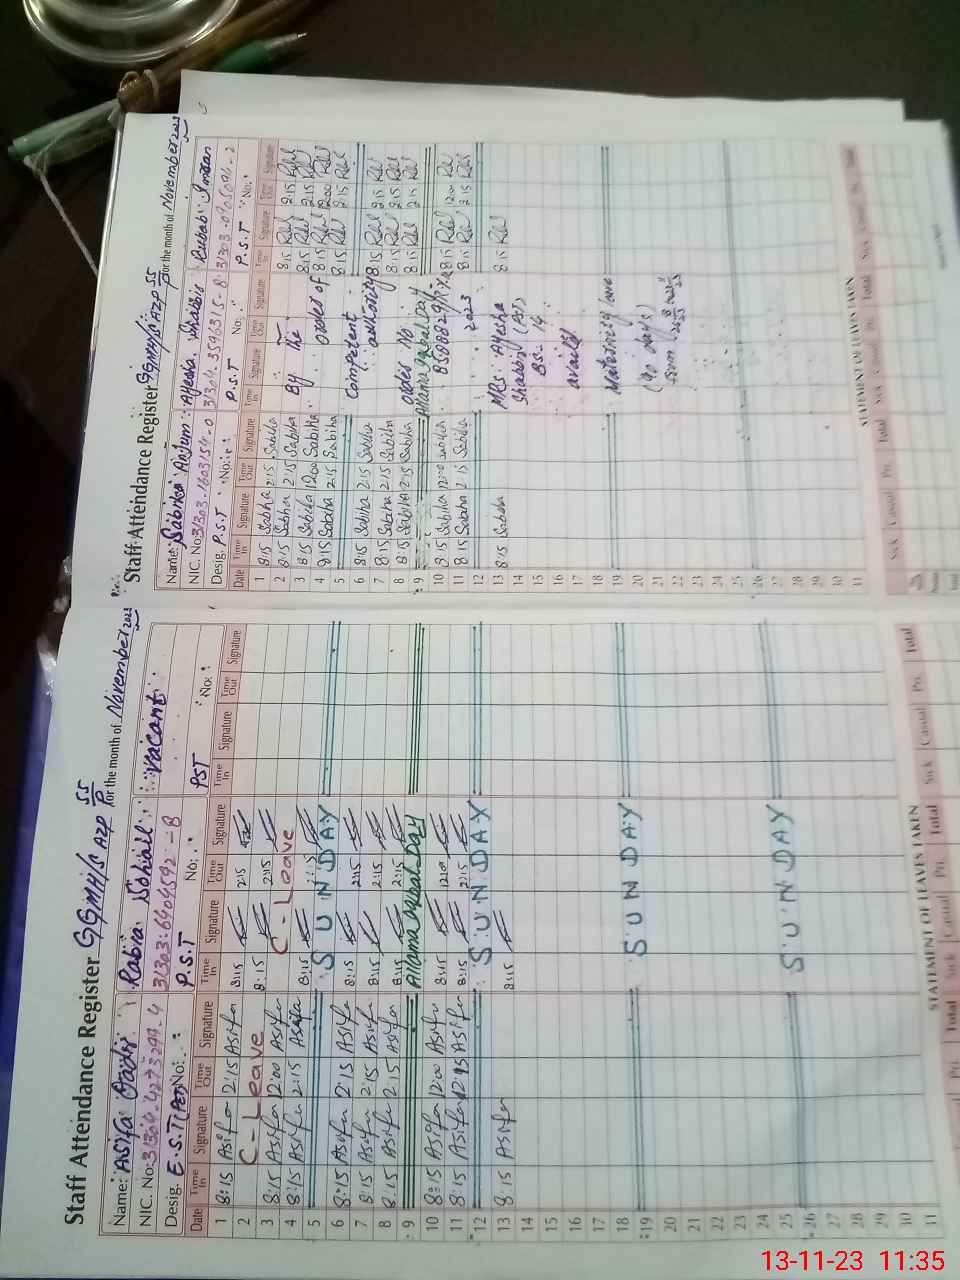 Staff Attendance Register GGMH/S AZP SS/P for the month of November 2023
Name: Asifa Qadir Rabia Sohail Vacant
NIC. No: 31304-4273299-4 31303-6404592-8
Desig. E.S.T P.S.T No: PST No:
Date Time In Signature Time Out Signature Time In Signature Time Out Signature Time In Signature Time Out Signature
1 8:15 Asifa 2:15 Asifa 8:15 2:15
2 C-Leave 8:15 2:15
3 8:15 Asifa 12:00 Asifa C-Leave
4 8:15 Asifa 2:15 Asifa 8:15
5 SUNDAY
6 8:15 Asifa 2:15 Asifa 8:15 2:15
7 8:15 Asifa 2:15 Asifa 8:15 2:15
8 8:15 Asifa 2:15 Asifa 8:15 2:15
9 Allama Iqbal Day
10 8:15 Asifa 12:00 Asifa 8:15 12:00
11 8:15 Asifa 2:15 Asifa 8:15 2:15
12 SUNDAY
13 8:15 Asifa 8:15
14
15
16
17
18
19 SUNDAY
20
21
22
23
24
25
26 SUNDAY
27
28
29
30
31
STATEMENT OF LEAVES TAKEN
Pri. Total Sick Casual Pri. Total Sick Casual Pri. Total
Staff Attendance Register GGMH/S AZP SS/P for the month of November 2023
Name: Sabiha Anjum Ayesha Shabbir Rubab Imran
NIC. No: 31303-1603154-0 31304-3596315-8
Desig. P.S.T No: P.S.T No: P.S.T No:
Date Time In Signature Time Out Signature Time In Signature Time Out Signature Time In Signature Time Out Signature
1 8:15 Sabiha 2:15 Sabiha 8:15 2:15
2 8:15 Sabiha 2:15 Sabiha By The 8:15 2:15
3 8:15 Sabiha 12:00 Sabiha orders of 8:15 12:00
4 8:15 Sabiha 2:15 Sabiha 8:15 2:15
5 Competent
6 8:15 Sabiha 2:15 Sabiha authority 8:15 2:15
7 8:15 Sabiha 2:15 Sabiha 8:15 2:15
8 8:15 Sabiha 2:15 Sabiha order No 8:15 2:15
9 Allama Iqbal Day
10 8:15 Sabiha 12:00 Sabiha 8:15 12:00
11 8:15 Sabiha 2:15 Sabiha 8:15 2:15
12 2023
13 8:15 Sabiha MRS: Ayesha 8:15
14 Shabbir (PST)
15 BS-14
16
17 availed
18
19 Maternity leave
20
21 (90 days)
22 from
23
24
25
26
27
28
29
30
31
STATEMENT OF LEAVES TAKEN
Sick Casual Pri. Total Sick Casual Pri. Total Sick Casual Pri. Total
13-11-23 11:35